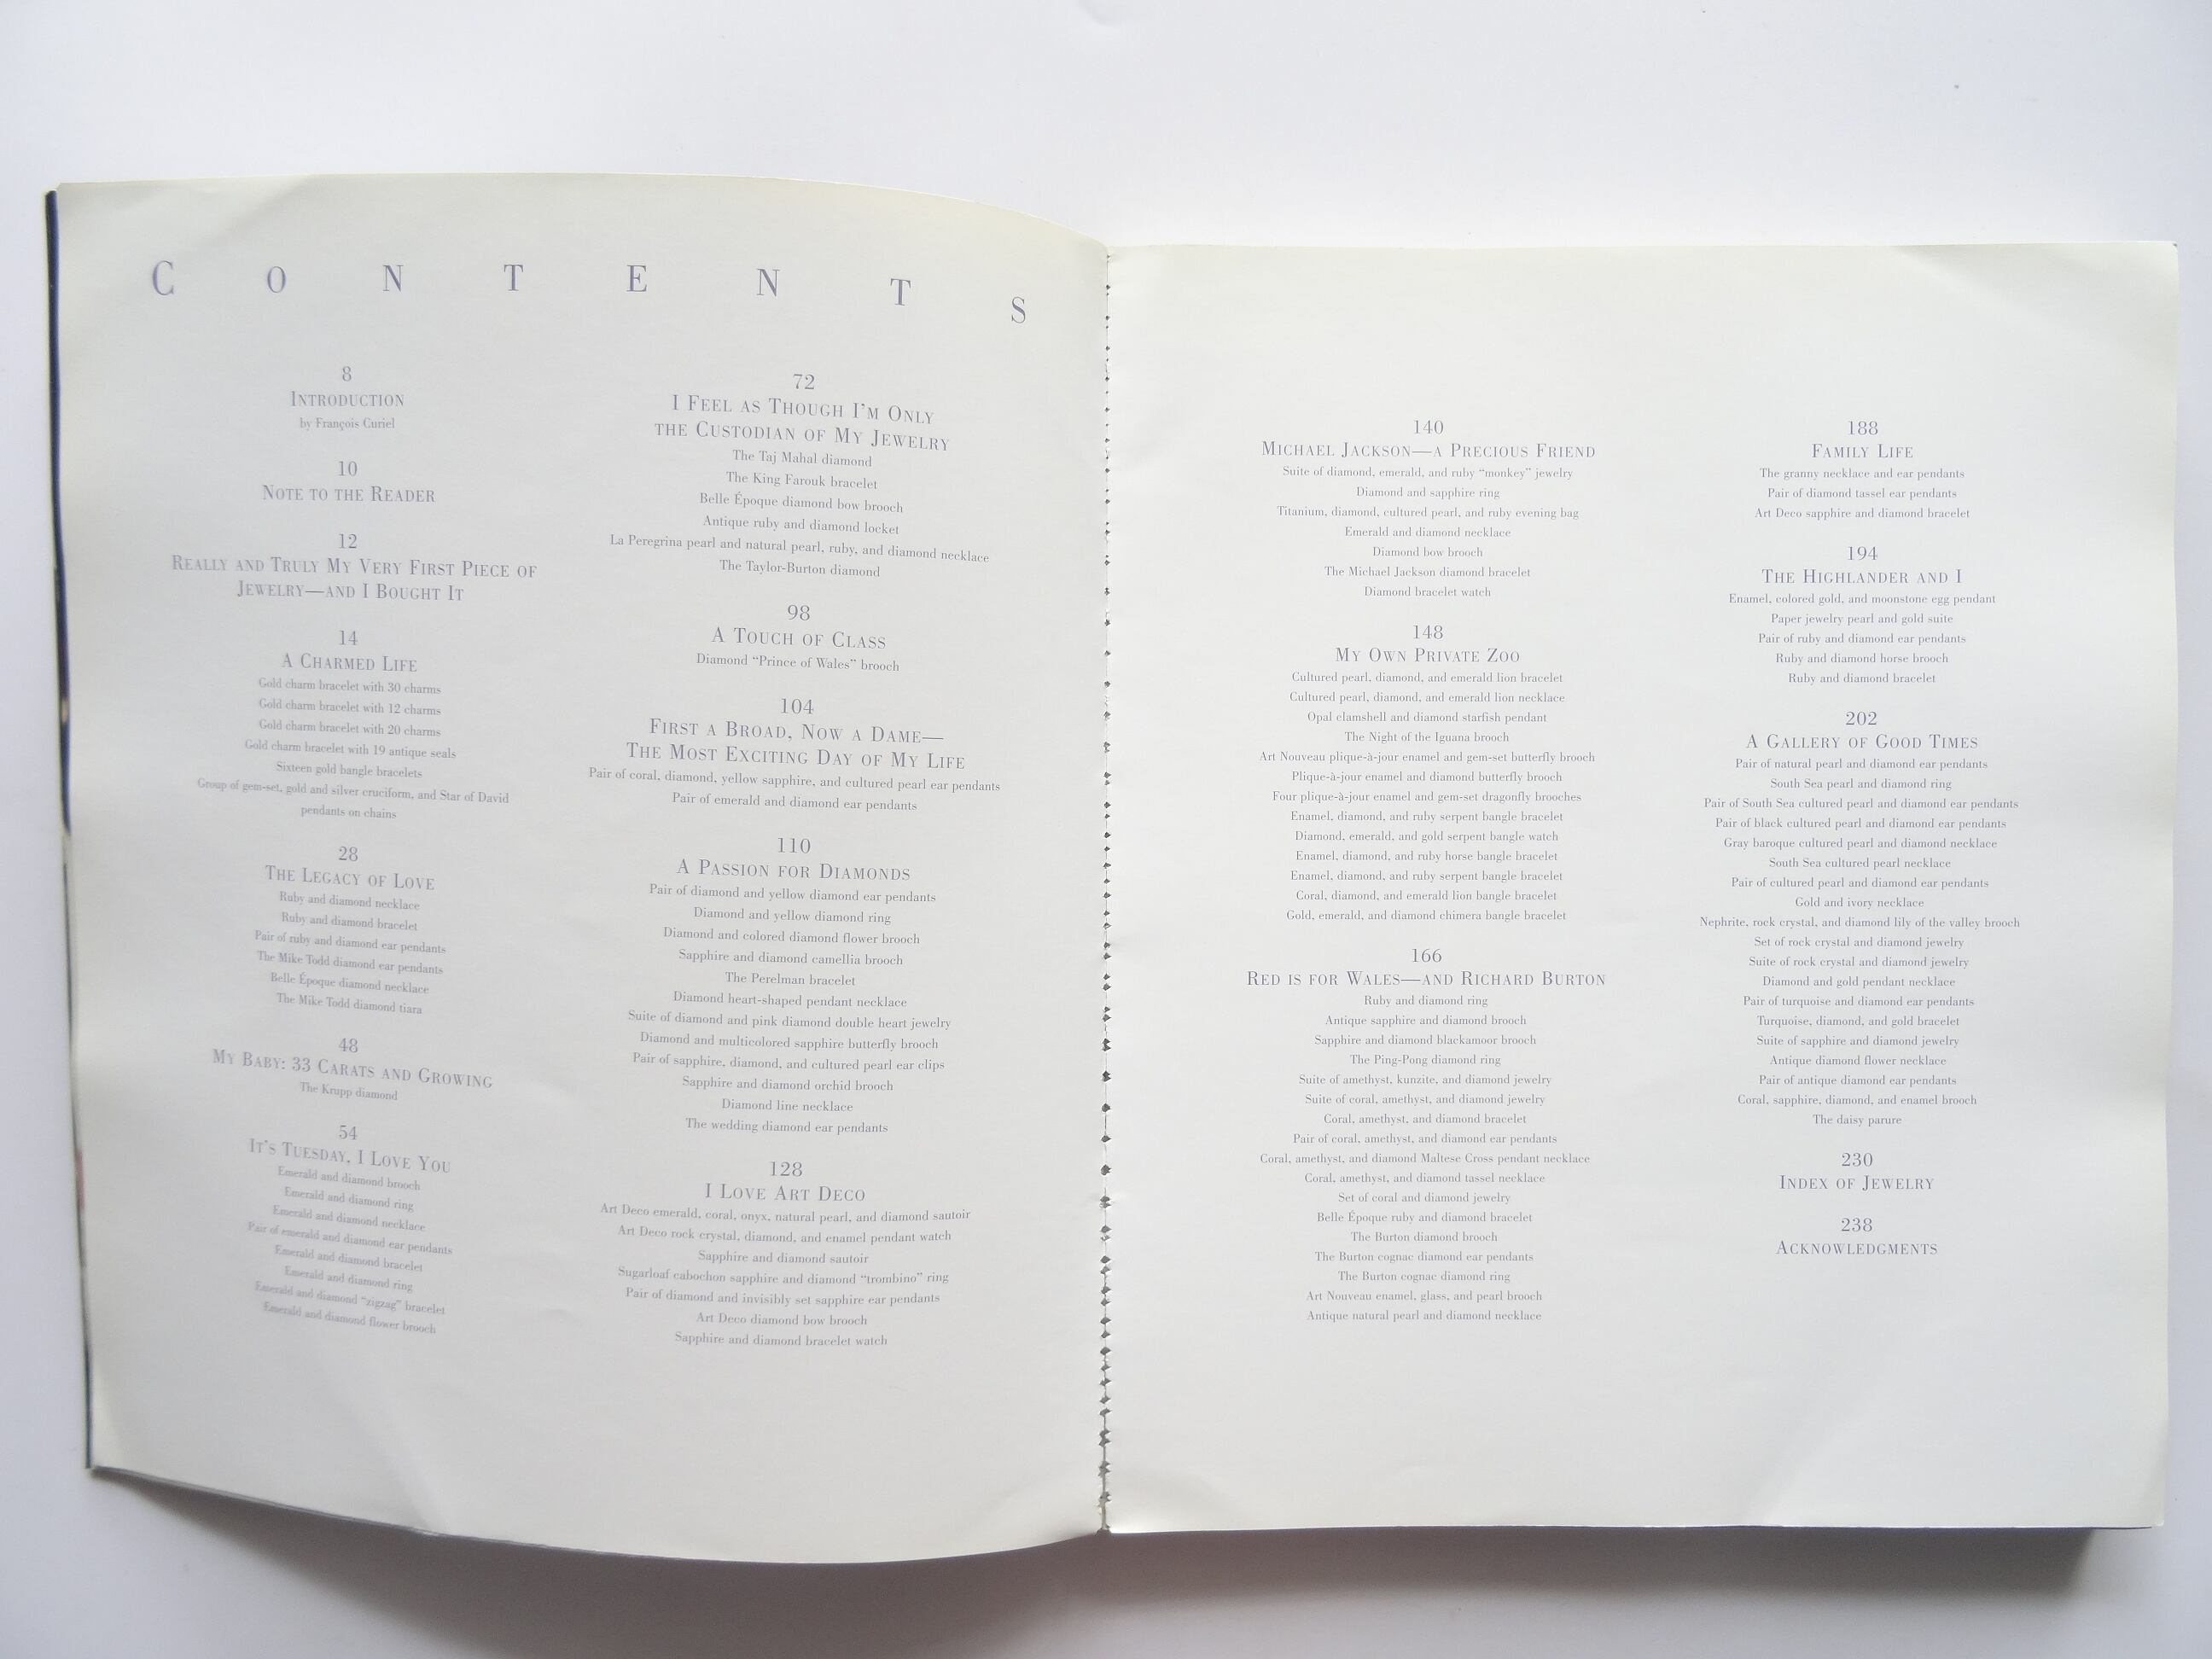 CONTENTS
8
INTRODUCTION
by François Curiel
10
NOTE TO THE READER
12
REALLY AND TRULY MY VERY FIRST PIECE OF
JEWELRY—AND I BOUGHT IT
14
A CHARMED LIFE
Gold charm bracelet with 30 charms
Gold charm bracelet with 12 charms
Gold charm bracelet with 20 charms
Gold charm bracelet with 19 antique seals
Sixteen gold bangle bracelets
Group of gem-set, gold and silver cruciform, and Star of David
pendants on chains
28
THE LEGACY OF LOVE
Ruby and diamond necklace
Ruby and diamond bracelet
Pair of ruby and diamond ear pendants
The Mike Todd diamond ear pendants
Belle Époque diamond necklace
The Mike Todd diamond tiara
48
MY BABY: 33 CARATS AND GROWING
The Krupp diamond
54
IT'S TUESDAY, I LOVE YOU
Emerald and diamond brooch
Emerald and diamond ring
Emerald and diamond necklace
Pair of emerald and diamond ear pendants
Emerald and diamond bracelet
Emerald and diamond ring
Emerald and diamond “zigzag” bracelet
Emerald and diamond flower brooch
72
I FEEL AS THOUGH I'M ONLY
THE CUSTODIAN OF MY JEWELRY
The Taj Mahal diamond
The King Farouk bracelet
Belle Époque diamond bow brooch
Antique ruby and diamond locket
La Peregrina pearl and natural pearl, ruby, and diamond necklace
The Taylor-Burton diamond
98
A TOUCH OF CLASS
Diamond “Prince of Wales” brooch
104
FIRST A BROAD, NOW A DAME—
THE MOST EXCITING DAY OF MY LIFE
Pair of coral, diamond, yellow sapphire, and cultured pearl ear pendants
Pair of emerald and diamond ear pendants
110
A PASSION FOR DIAMONDS
Pair of diamond and yellow diamond ear pendants
Diamond and yellow diamond ring
Diamond and colored diamond flower brooch
Sapphire and diamond camellia brooch
The Perelman bracelet
Diamond heart-shaped pendant necklace
Suite of diamond and pink diamond double heart jewelry
Diamond and multicolored sapphire butterfly brooch
Pair of sapphire, diamond, and cultured pearl ear clips
Sapphire and diamond orchid brooch
Diamond line necklace
The wedding diamond ear pendants
128
I LOVE ART DECO
Art Deco emerald, coral, onyx, natural pearl, and diamond sautoir
Art Deco rock crystal, diamond, and enamel pendant watch
Sapphire and diamond sautoir
Sugarloaf cabochon sapphire and diamond “trombino” ring
Pair of diamond and invisibly set sapphire ear pendants
Art Deco diamond bow brooch
Sapphire and diamond bracelet watch
140
MICHAEL JACKSON—A PRECIOUS FRIEND
Suite of diamond, emerald, and ruby “monkey” jewelry
Diamond and sapphire ring
Titanium, diamond, cultured pearl, and ruby evening bag
Emerald and diamond necklace
Diamond bow brooch
The Michael Jackson diamond bracelet
Diamond bracelet watch
148
MY OWN PRIVATE ZOO
Cultured pearl, diamond, and emerald lion bracelet
Cultured pearl, diamond, and emerald lion necklace
Opal clamshell and diamond starfish pendant
The Night of the Iguana brooch
Art Nouveau plique-à-jour enamel and gem-set butterfly brooch
Plique-à-jour enamel and diamond butterfly brooch
Four plique-à-jour enamel and gem-set dragonfly brooches
Enamel, diamond, and ruby serpent bangle bracelet
Diamond, emerald, and gold serpent bangle watch
Enamel, diamond, and ruby horse bangle bracelet
Enamel, diamond, and ruby serpent bangle bracelet
Coral, diamond, and emerald lion bangle bracelet
Gold, emerald, and diamond chimera bangle bracelet
166
RED IS FOR WALES—AND RICHARD BURTON
Ruby and diamond ring
Antique sapphire and diamond brooch
Sapphire and diamond blackamoor brooch
The Ping-Pong diamond ring
Suite of amethyst, kunzite, and diamond jewelry
Suite of coral, amethyst, and diamond jewelry
Coral, amethyst, and diamond bracelet
Pair of coral, amethyst, and diamond ear pendants
Coral, amethyst, and diamond Maltese Cross pendant necklace
Coral, amethyst, and diamond tassel necklace
Set of coral and diamond jewelry
Belle Époque ruby and diamond bracelet
The Burton diamond brooch
The Burton cognac diamond ear pendants
The Burton cognac diamond ring
Art Nouveau enamel, glass, and pearl brooch
Antique natural pearl and diamond necklace
188
FAMILY LIFE
The granny necklace and ear pendants
Pair of diamond tassel ear pendants
Art Deco sapphire and diamond bracelet
194
THE HIGHLANDER AND I
Enamel, colored gold, and moonstone egg pendant
Paper jewelry pearl and gold suite
Pair of ruby and diamond ear pendants
Ruby and diamond horse brooch
Ruby and diamond bracelet
202
A GALLERY OF GOOD TIMES
Pair of natural pearl and diamond ear pendants
South Sea pearl and diamond ring
Pair of South Sea cultured pearl and diamond ear pendants
Pair of black cultured pearl and diamond ear pendants
Gray baroque cultured pearl and diamond necklace
South Sea cultured pearl necklace
Pair of cultured pearl and diamond ear pendants
Gold and ivory necklace
Nephrite, rock crystal, and diamond lily of the valley brooch
Set of rock crystal and diamond jewelry
Suite of rock crystal and diamond jewelry
Diamond and gold pendant necklace
Pair of turquoise and diamond ear pendants
Turquoise, diamond, and gold bracelet
Suite of sapphire and diamond jewelry
Antique diamond flower necklace
Pair of antique diamond ear pendants
Coral, sapphire, diamond, and enamel brooch
The daisy parure
230
INDEX OF JEWELRY
238
ACKNOWLEDGMENTS